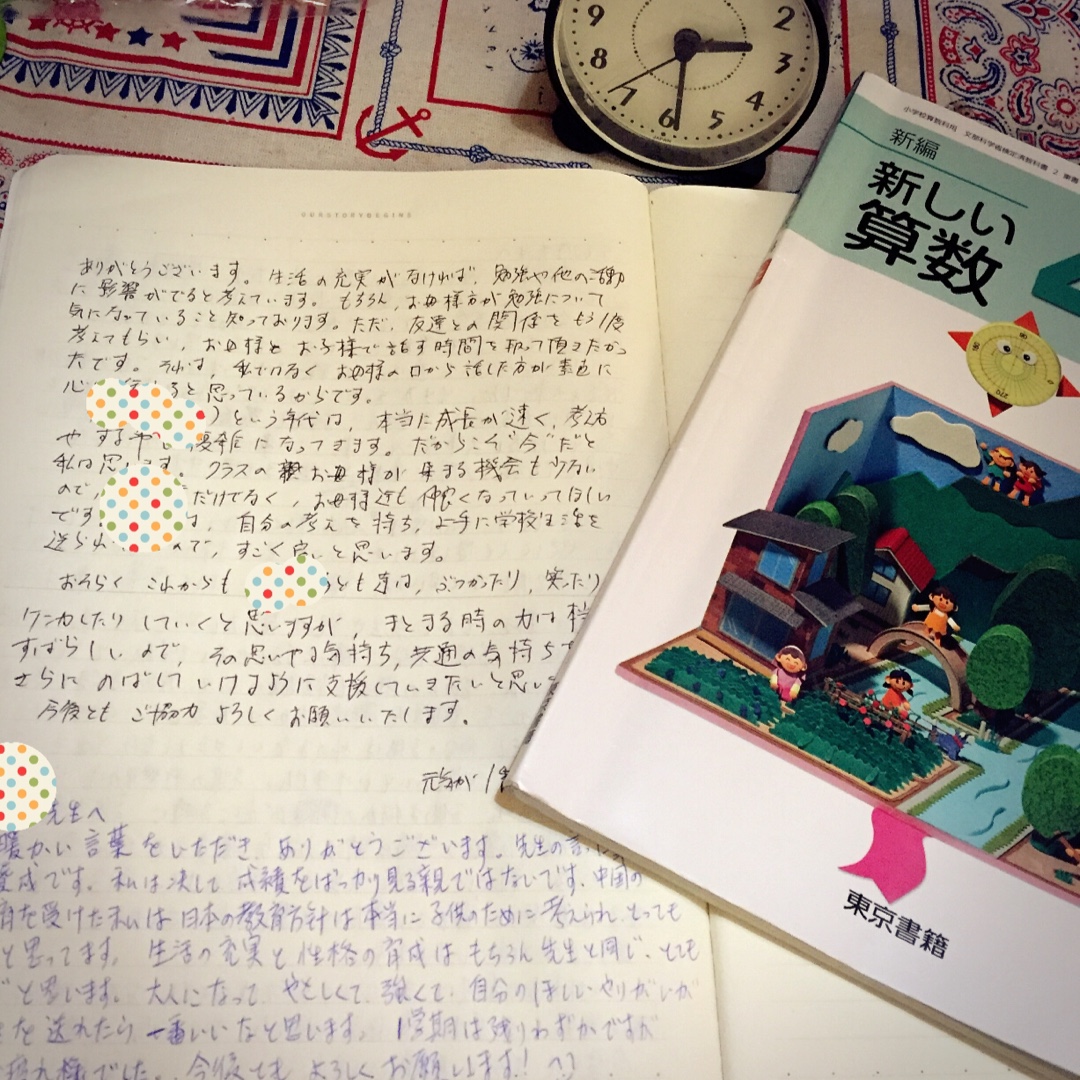 9
8
7
6
5
4
3
2
ありがとうございます。生活の充実がなければ、勉強や他の活動
に影響がでると考えています。もちろん、お母様方が勉強について
気になっていること知っております。ただ、友達との関係をもう1度
考えてもらい、お母様とお子様で話す時間を取って頂きたかっ
たです。それは、私ではなく お母様の口から話した方が素直に
ると思っているからです。
)という年代は、本当に成長が速く、考え方
や する になってきます。だからこそ"今"だと
私は思います。クラスの お母様が集まる機会も少ない
ので、 だけでなく、お母様達も仲良くなっていってほしい
です は、自分の考えを持ち、上手に学校生活を
送られ ので、すごく良いと思います。
おそらく これからも うとも達は、ぶつかったり、笑ったり
ケンカしたりしていくと思いますが、まとまる時の力は
すばらしいので、その思いやる気持ち、共通の気持ち
さらに のばしていけるように支援していきたいと思い
今後とも ご協力 よろしくお願いいたします。
元気が
先生へ
暖かい言葉をいただき、ありがとうございます。先生の言
成です。私は決して 成績をばっかり見る親ではないです、中国の
を受けた私は日本の教育方針は本当に子供のために考えられ、とっても
と思ってます。生活の充実と性格の育成はもちろん先生と同じ、とても
と思います。大人になって、やさしくて、強くて、自分のほしいやりがいが
を送れたら、一番いいなと思います。1学期は残りわずかですが
様でした。今後とも よろしくお願いします!
小学校算数科用 文部科学省検定済教科書 2 東書
新編
新しい
算数
東京書籍